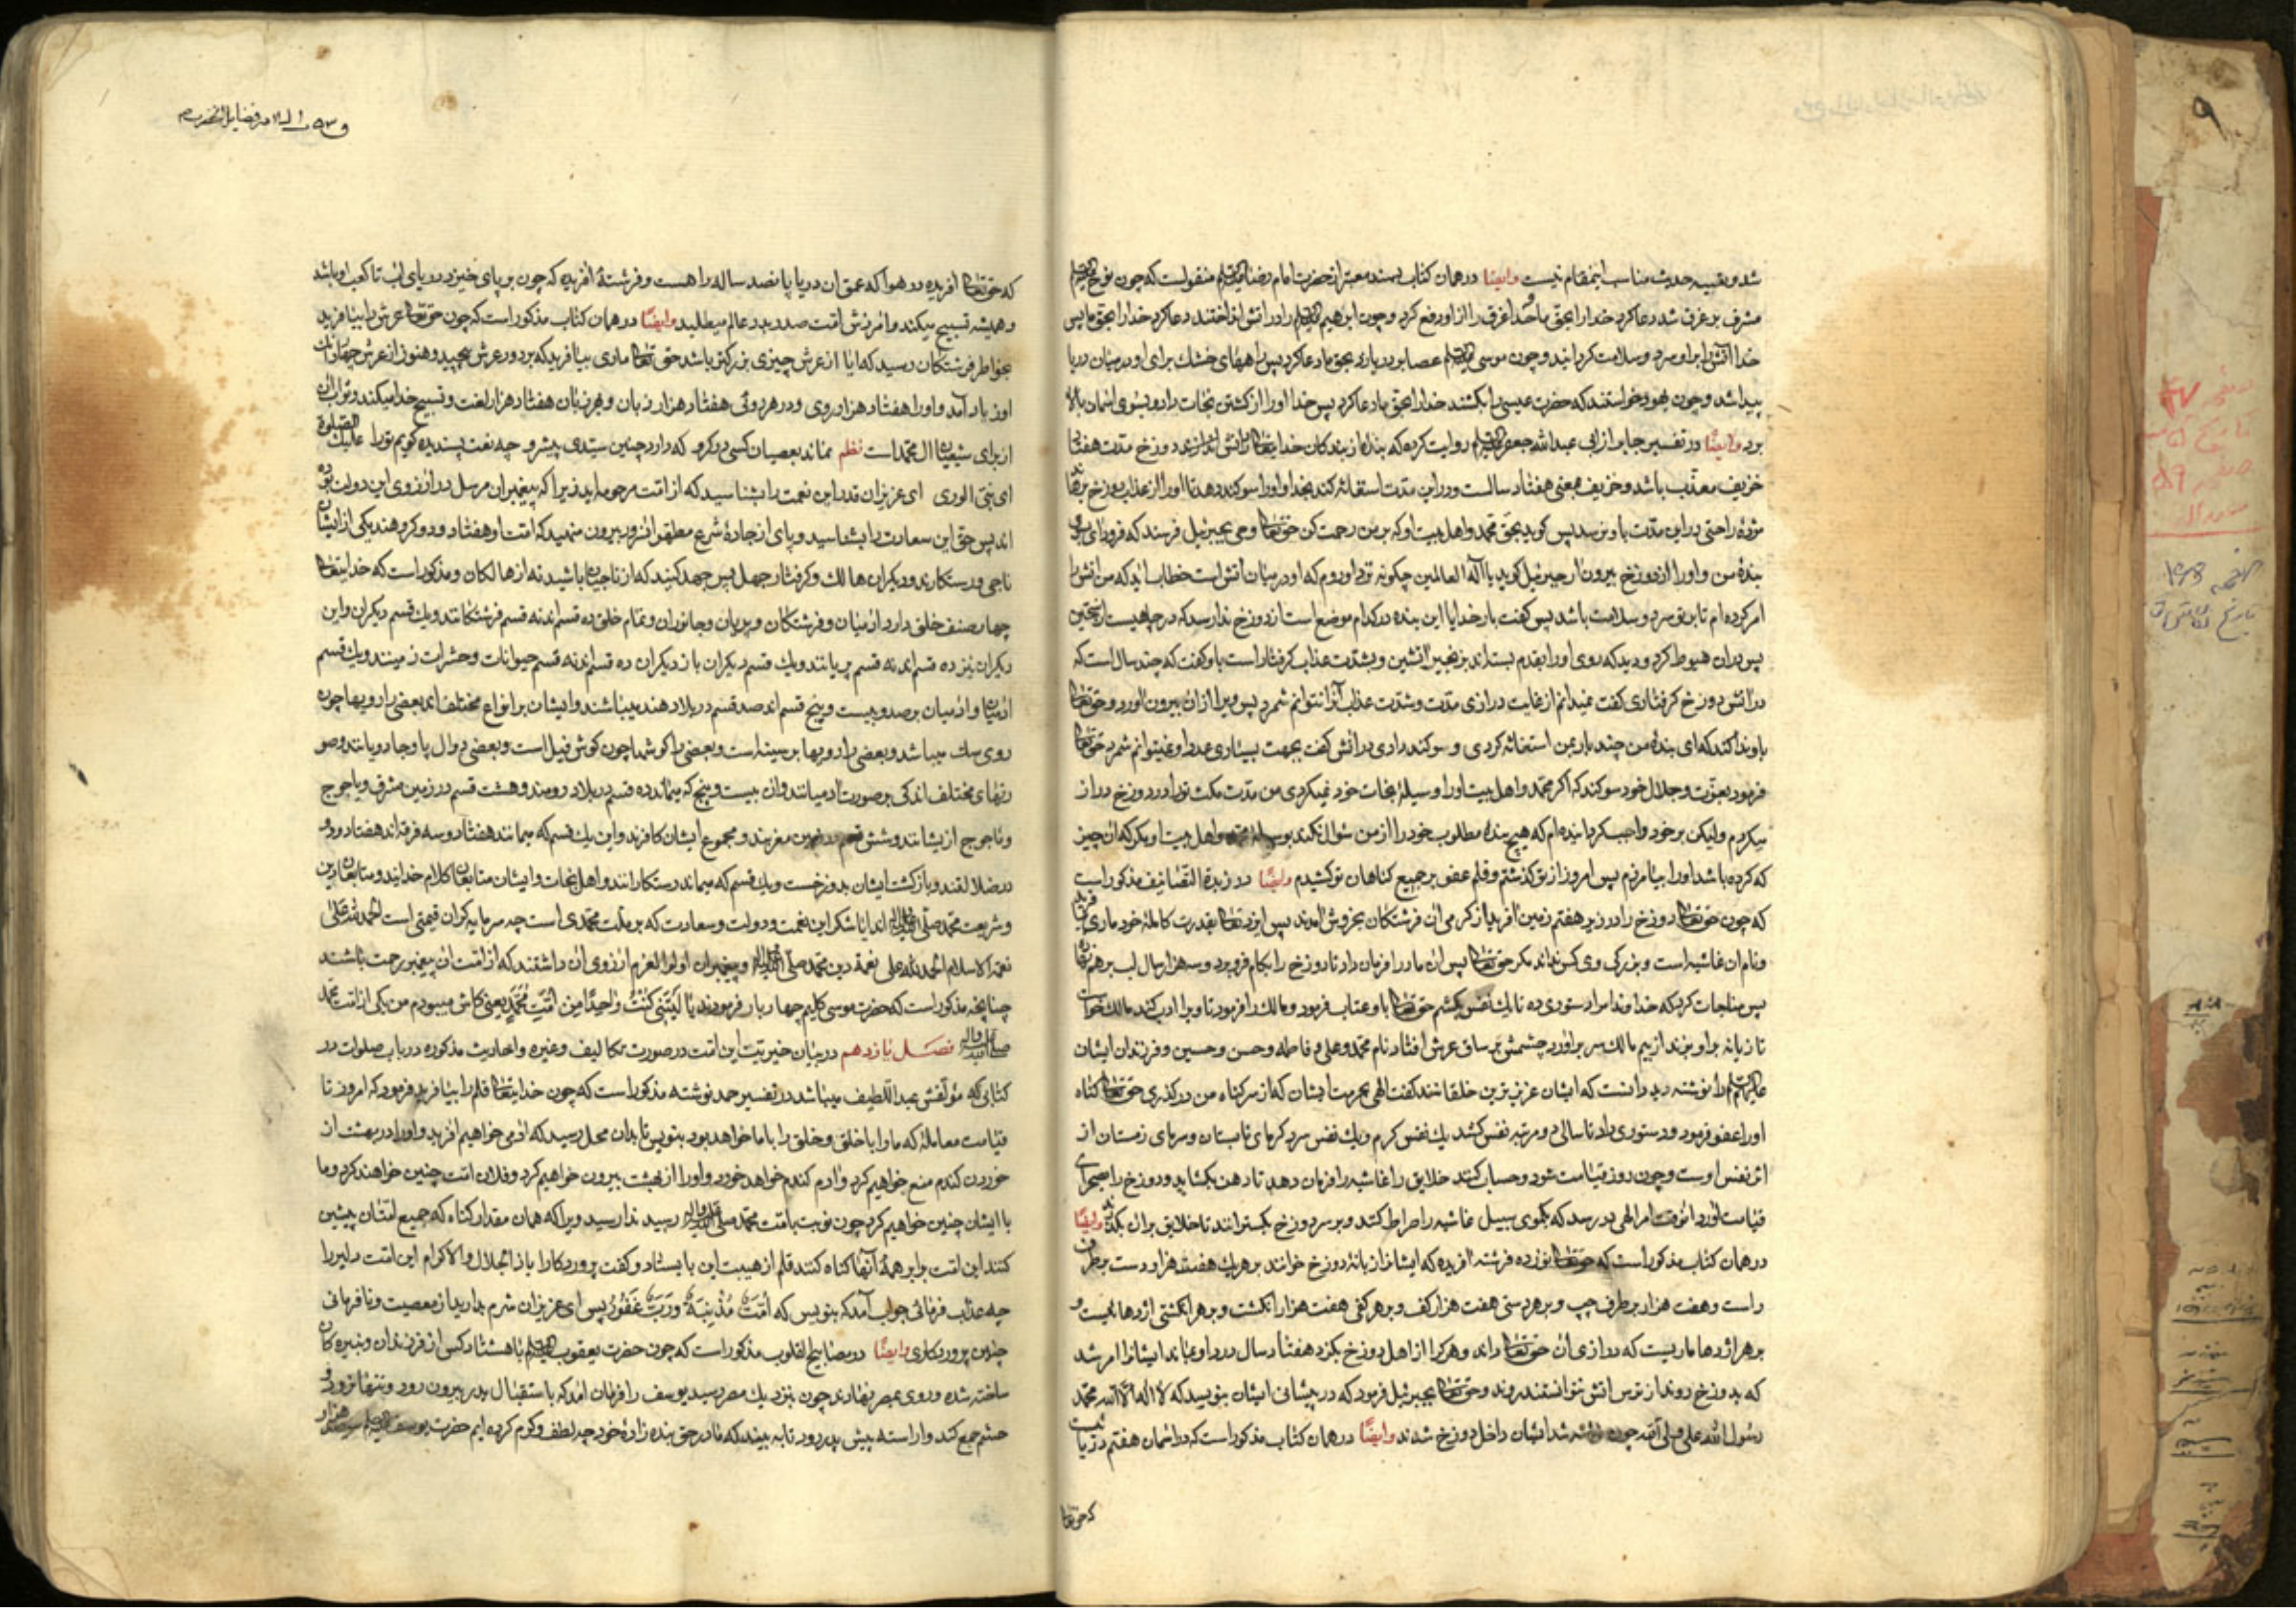 ۹
شد و بقیه حدیث مناسب اینمقام نیست وایضًا در همان کتاب بسند معتبر از حضرت امام رضا علیه السلم منقولست که چون نوح علیه السلم
مشرف بر غرق شد دعا کرد خدا را بحق ما خدا غرق را از او رفع کرد و چون ابرهیم علیه السلم را در اتش انداختند دعا کرد خدا را بحق ما پس
خدا اتش را بر او سرد و سلامت کردانید و چون موسی علیه السلم عصا بر دریا زد بحق ما دعا کرد پس راههای خشك برای او در میان دریا
پیدا شد و چون یهود خواستند که حضرت عیسی را بکشند خدا را بحق ما دعا کرد پس خدا او را از کشتن نجات داد و بسوی اسمان بالا
برد وایضًا در تفسیر جابر از ابی عبدالله جعفر علیه السلم روایت کرده که بندهٔ از بندکان خدایتعالی در اتش دوزخ مدت هفتاد
خریف معذّب باشد و خریف بمعنی هفتاد سالست و در این مدت استغاثه کند بخدا و او را سوکند دهد تا او را از عذاب دوزخ برهاند
مژدهٔ راحتی در این مدّت باو نرسد پس کوید بحق محمد و اهل بیت او که بر من رحمت کن حق تعالی وحی بجبرئیل فرستد که فرود ای بر
بندهٔ من و او را از دوزخ بیرون ار جبرئیل کوید یا اله العالمین چکونه نزد او روم که او در میان اتش است خطاب اید که من اتش را
امر کرده ام تا بر تو سرد و سلامت باشد پس کفت بار خدایا این بنده در کدام موضع است از دوزخ ندا رسد که در چاهیست از سجین
پس بدان هبوط کرد و دید که روی او را بقدم بسته اند بزنجیر اتشین و بشدت عذاب کرفتار است باو کفت که چند سال است که
در اتش دوزخ کرفتاری کفت نمیدانم از غایت درازی مدت و شدت عذاب انرا نتوانم شمرد پس ویرا از ان بیرون اورد و حق تعالی
باو ندا کند که ای بندهٔ من چند بار بمن استغاثه کردی و سوکند دادی در اتش کفت بجهت بسیاری عدد او نمیتوانم شمرد حق تعالی
فرمود بعزّت و جلال خود سوکند که اکر محمد و اهل بیت او را وسیلهٔ نجات خود نمیکردی من مدت مکث تو را در دوزخ دراز
میکردم ولیکن بر خود واجب کردانیده ام که هیچ بنده مطلوب خود را از من سؤال نکند بوسیله محمد و اهل بیت او مکر که ان چیز
که کرده باشد او را بیامرزم پس امروز از تو کذشتم و قلم عفو بر جمیع کناهان تو کشیدم وایضًا در زبدة التصانیف مذکور است
که چون حق تعالی دوزخ را در زیر هفتم زمین افرید از کرمی ان فرشتکان بخروش امدند پس ایزد تعالی بقدرت کاملهٔ خود ماری افرید
و نام ان غاشیه است و بزرکی وی کس نداند مکر حق تعالی پس ان مار را فرمان داد تا دوزخ را بکام فرو برد و سه هزار سال لب بر هم نهاد
پس مناجات کرد که خداوندا مرا دستوری ده تا یك نفس بکشم حق تعالی باو عتاب فرمود و مالك را فرمود تا ویرا ادب کند مالك خواست
تا زیانه بر او بزند از بیم مالك سر بر اورد چشمش بر ساق عرش افتاد نام محمد و علی و فاطمه و حسن و حسین و فرزندان ایشان
علیهم السلم را نوشته دید دانست که ایشان عزیزترین خلقانند کفت الهی بحرمت ایشان که از سر کناه من در کذری حق تعالی کناه
او را عفو فرمود و دستوری داد تا سالی دو مرتبه نفس کشد یك نفس کرم و یك نفس سرد کرمای تابستان و سرمای زمستان از
اثر نفس اوست و چون روز قیامت شود و حساب کنند خلایق را غاشیه را فرمان دهد تا دهن بکشاید و دوزخ را بصحرای
قیامت اورد انوقت امر الهی در رسد که بکلوی سبیل غاشیه را صراط کنند و بر سر دوزخ بکسترانند تا خلایق بر ان بکذرند وایضًا
در همان کتاب مذکور است که حق تعالی نوزده فرشته افریده که ایشانرا زبانهٔ دوزخ خوانند بر هر یك هفت هزار دست بر طرف
راست و هفت هزار بر طرف چپ و بر هر دستی هفت هزار کف و بر هر کفی هفت هزار انکشت و بر هر انکشتی اژدهائیست و
بر هر اژدها ماریست که درازی ان حق تعالی داند و هر کرا از اهل دوزخ بکزد هفتاد سال درد او بماند ایشانرا امر شد
که بدوزخ روند از ترس اتش نتوانستند روند و حق تعالی بجبرئیل فرمود که در پیشانی ایشان بنویسد که لا اله الا الله محمد
رسول الله علی ولی الله چون نوشته شد ایشان داخل دوزخ شدند وایضًا در همان کتاب مذکور است که در اسمان هفتم دریائیست
که حق تعالی
که حق تعالی افریده در هوا که عمق ان دریا پانصد ساله راهست و فرشتهٔ افریده که چون بر پای خیزد دریای اب تا کعب او باشد
و همیشه تسبیح میکند و امرزش امت صدر و بدر عالم میطلبد وایضًا در همان کتاب مذکور است که چون حق تعالی عرش را بیافرید
بخواطر فرشتکان رسید که ایا از عرش چیزی بزرکتر باشد حق تعالی ماری بیافرید که بر دور عرش پیچید و هنوز از عرش چهار
او زیاد آمد و او را هفتاد هزار روی و در هر روئی هفتاد هزار زبان و بهر زبان هفتاد هزار لغت و تسبیح خدا میکند و ثواب ان
از برای شیعیان ال محمد است نظم نماند بعصیان کسی در کرو که دارد چنین سیّدی پیشرو چه نعت پسندیده کویم تو را علیك الصلوة
ای نبی الوری ای عزیزان قدر این نعمت را بشناسید که از امت مرحومه اید زیرا که پیغمبران مرسل در ارزوی این دولت بوده
اند پس حق این سعادت را بشناسید و پای از جادهٔ شرع مطهر انسرور بیرون منهید که امت او هفتاد و دو کروهند یکی از ایشان
ناجی و رستکار و دیکران هالك و کرفتار جهل پس جهد کنید که از ناجیان باشید نه از هالکان و مذکور است که خدایتعالی
چهار صنف خلق دارد ادمیان و فرشتکان و پریان و جانوران و تمام خلق ده قسم اند نه قسم فرشتکانند و یك قسم دیکران و این
دیکران نیز ده قسم اند نه قسم پریانند و یك قسم دیکران باز دیکران ده قسم اند نه قسم حیوانات و حشرات زمینند و یك قسم
ادمیان و ادمیان بر صد و بیست و پنج قسم اند صد قسم در بلاد هند میباشند و ایشان بر انواع مختلف اند بعضی را رویها چون
روی سك میباشد و بعضی را رویها بر سینه است و بعضی را کوشها چون کوش فیل است و بعضی دوال پا و جادویانند و صو
رتهای مختلف اندکی بر صورت ادمیانند و ان بیست و پنج که میماند ده قسم در بلاد رومند و هشت قسم در زمین مشرق و یاجوج
و ماجوج از یشانند و شش قسم در زمین مغربند و مجموع ایشان کافرند و این یك قسم که میمانند هفتاد و سه فرقه اند هفتاد و دو
در ضلالتند و بازکشت ایشان بدوزخست و یك قسم که میماند رستکارانند و اهل نجات و ایشان متابعان کلام خدایند و متابعان دین
و شریعت محمد صلی الله علیه واله اند ایا شکر این نعمت و دولت و سعادت که بر ملّت محمدی است چه سرمایهٔ کران قیمتی است الحمد لله علی
نعمة الاسلام الحمد لله علی نعمة دین محمد صلی الله علیه واله و پیغمبران اولوا العزم ارزوی ان داشتند که از امت ان پیغمبر رحمت باشند
چنانچه مذکور است که حضرت موسی کلیم چهار بار فرمودند یا لَیتَنِی کُنتُ واحِدًا مِن اُمَّتِ مُحَمَّدٍ یعنی کاش میبودم من یکی از امت محمد
صلی الله علیه واله فصل یازدهم در بیان خیریّت این امت در صورت تکالیف و غیره و احادیث مذکوره در باب صلوات در
کتابی که مؤلفش عبد اللطیف میباشد در تفسیر حمد نوشته مذکور است که چون خدایتعالی قلم را بیافرید فرمود که امروز تا
قیامت معاملهٔ که ما را با خلق و خلق را با ما خواهد بود بنویس تا بدان محل رسید که ادمی خواهیم افرید و او را در بهشت از
خوردن کندم منع خواهیم کرد و ادم کندم خواهد خورد و او را از بهشت بیرون خواهیم کرد و فلان امت چنین خواهند کرد و ما
با ایشان چنین خواهیم کرد چون نوبت بامت محمد صلی الله علیه واله رسید ندا رسید ویرا که همان مقدار کناه که جمیع امتان پیشین
کنند این امت برابر همهٔ آنها کناه کنند قلم از هیبت این بایستاد و کفت پروردکارا یا ذا الجلال والاکرام این امت دلیر را
چه عذاب فرمائی جواب آمد که بنویس که اُمَّتٌ مُذْنِبَةٌ وَرَبٌّ غَفُورٌ پس ای عزیزان شرم بدارید از معصیت و نافرمانی
چنین پروردکاری وایضًا در مصابیح القلوب مذکور است که چون حضرت یعقوب علیه السلم با هشتاد کس از فرزندان و نبیره کان
ساخته شده و روی بمصر نهادند چون بنزدیك مصر رسید یوسف را فرمان امد که باستقبال پدر بیرون رود و تنها نرود و
حشم جمع کند و اراسته پیش پدر رود تا به بیند که ما در حق بنده زادهٔ خود چه لطف و کرم کرده ایم حضرت یوسف علیه السلم سیصد هزار